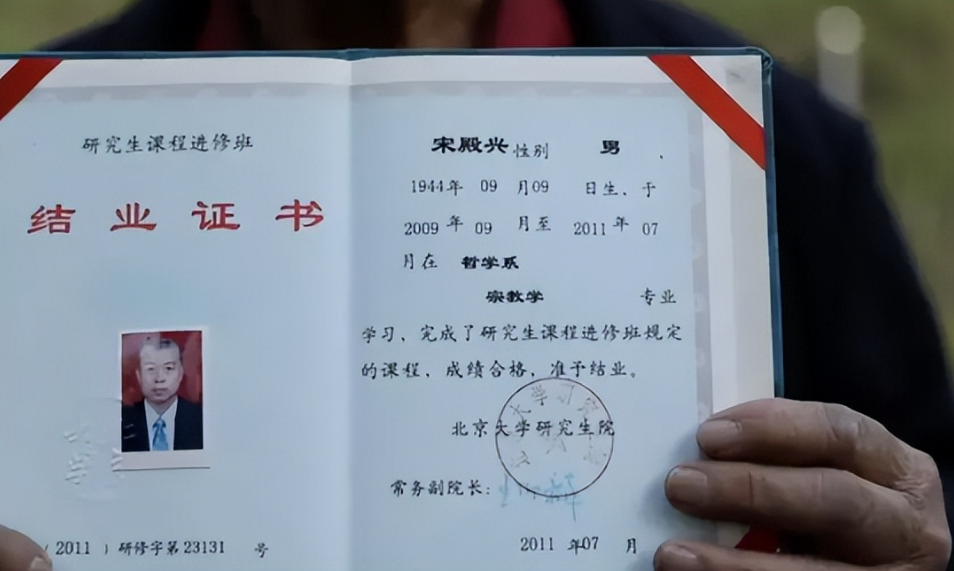 研究生课程进修班
结业证书
(2011)研修字第23131 号
宋殿兴 性别 男、
1944年 09 月09 日生、于
2009年 09 月至 2011年 07
月在 哲学系
宗教学 专业
学习、完成了研究生课程进修班规定
的课程、成绩合格，准予结业。
北京大学研究生院
常务副院长：
2011 年07 月